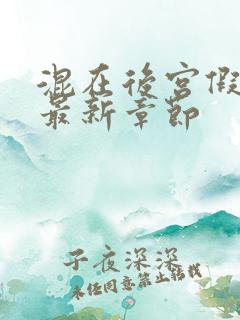 混在後宮假
最新章節
子夜深深
未任同意禁止转载